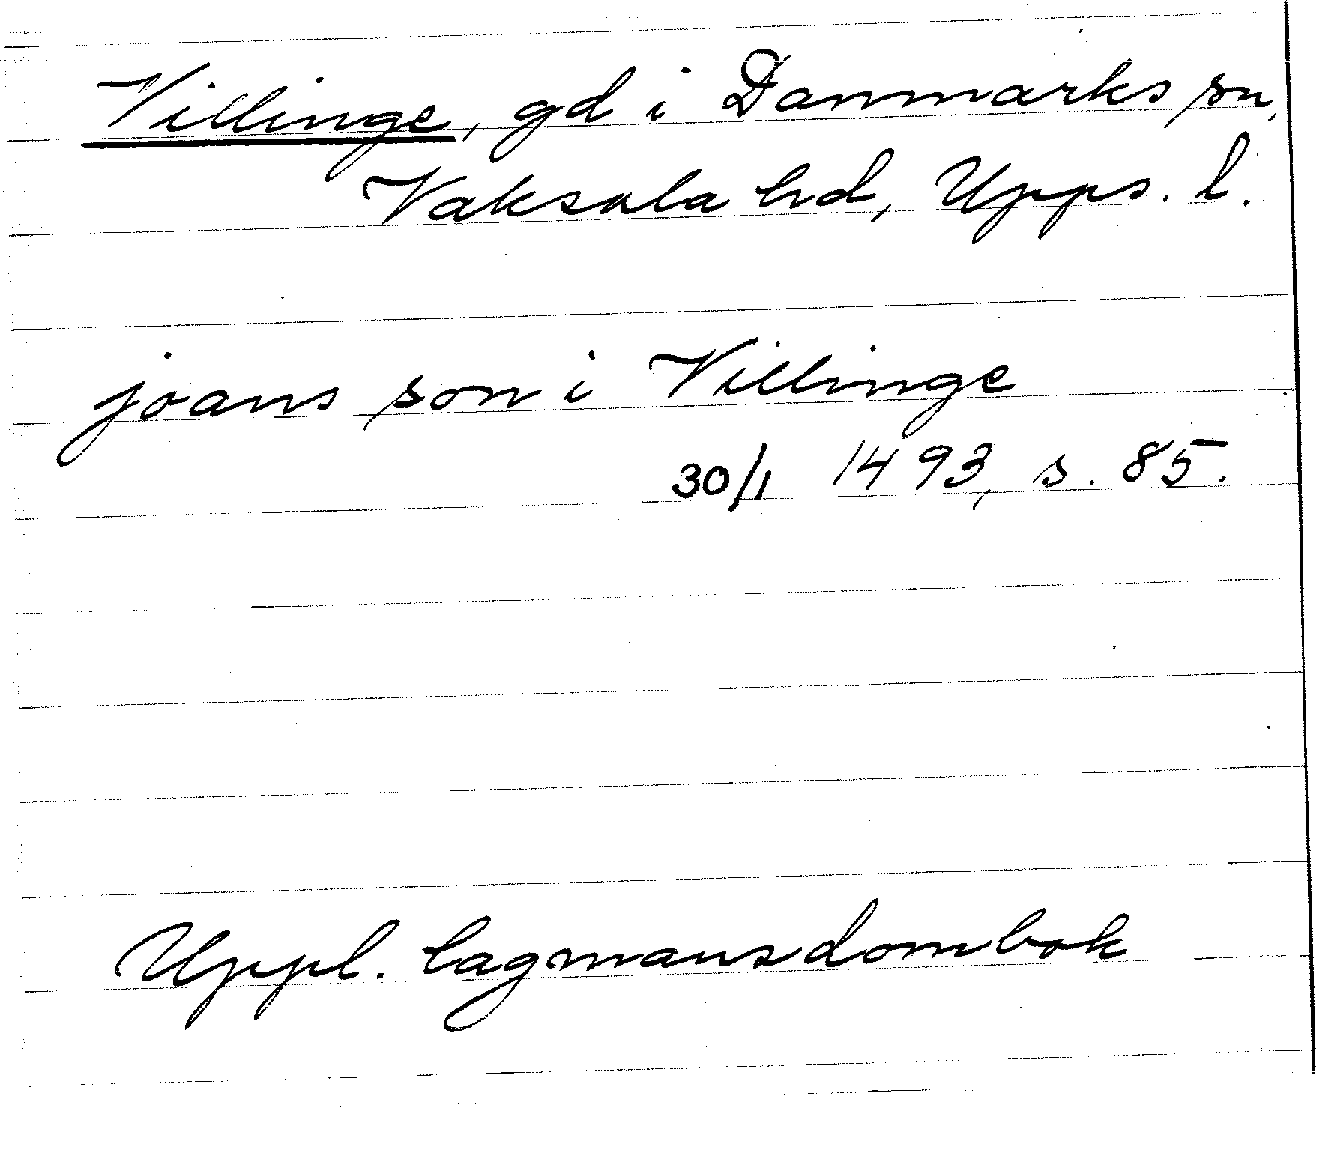 Villinge, gd i Danmarks sn,
Vaksala hd, Upps. l.
joans son i Villinge
30/1 1493, s. 85.
Uppl. lagmansdombok